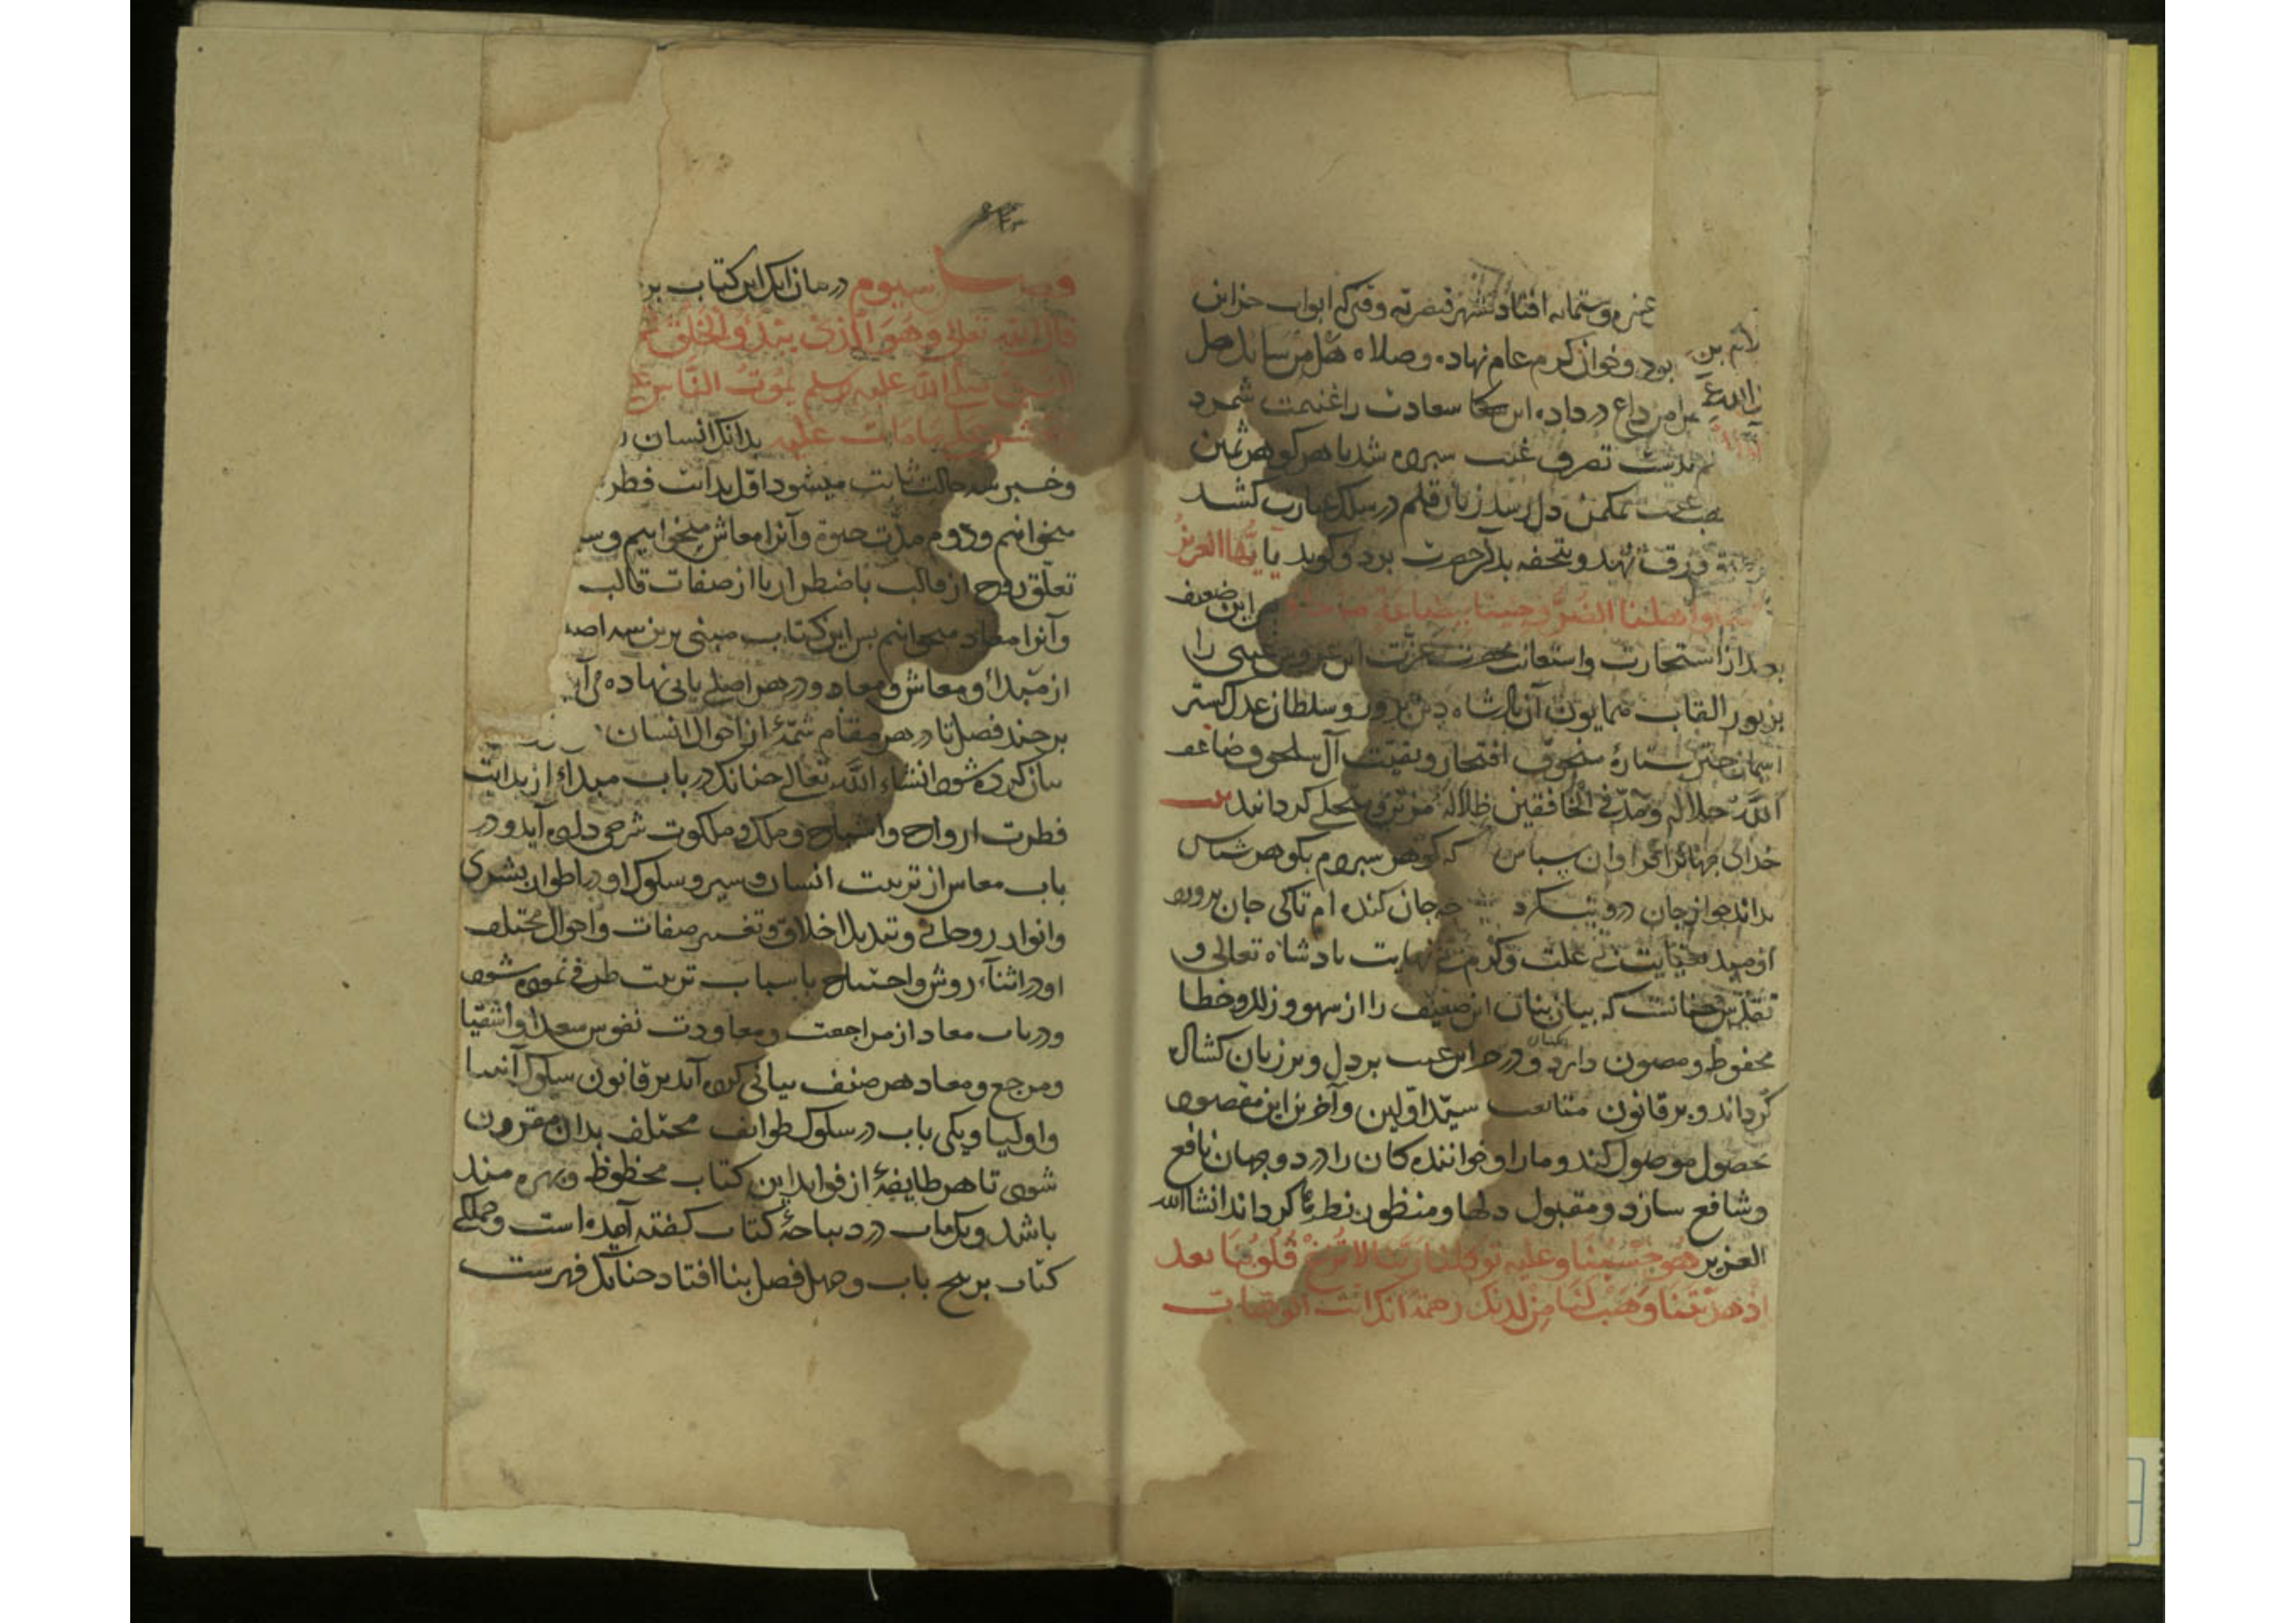 عشره وستمایه افتاد بشهر قیصریه وقتی که ابواب خزاین
بود وخوان کرم عام نهاده وصلاء هل من سائل هل
من داع در داده این سعادت را غنیمت شمرد
تصرف غیب سپرده شد یا هر گوهر ثمین
دل رسد زبان قلم در سلک عبارت کشد
ورق نهد وبتحفه بدان حضرت برد وگوید یا ایها العزیز
مسنا واهلنا الضر وجئنا ببضاعة مزجاة این ضعیف
بعد از استخارت واستعانت بحضرت عزت این عروس غیبی را
بزیور القاب همایون آن پادشاه دین پرور وسلطان عدل گستر
آسمان چتر ستاره سنجوق افتخار وبقیت آل سلجوق ضاعف
الله جلاله ومد فی الخافقین ظلاله مزین ومحلی گردانید
خدای جهانرا فراوان سپاس که گوهر سپردم بگوهر شناس
نداند جز از جان چه جان کنده ام تاکی جان پرورد
اومید بعنایت بی علت وکرم بی نهایت پادشاه تعالی و
تقدس چنانست که بیان بنان این ضعیف را از سهو وزلل وخطا
محفوظ ومصون دارد ودر خزاین غیب بر دل وبر زبان گشاده
گرداند وبر قانون متابعت سید اولین وآخرین این مقصود
بحصول موصول کند ومارا وخوانندگان را در دو جهان نافع
وشافع سازد ومقبول دلها ومنظور نظرها گرداند انشاالله
العزیز هو حسبنا وعلیه توکلنا ربنا لا تزغ قلوبنا بعد
اذ هدیتنا وهب لنا من لدنک رحمة انک انت الوهاب
فصل سیوم در بیان آنک این کتاب بر
قال الله تعالی وهو الذی یبدؤ الخلق ثم
النبی صلی الله علیه وسلم یموت الناس علی
ما مات علیه بدانک انسان
وخبر سه حالت ثابت میشود اول بدایت فطر
میخوانیم ودوم مدت حیوة وآنرا معاش میخوانیم وسـ
تعلق روح از قالب باضطرار یا از صفات قالب
وآنرا معاد میخوانیم پس این کتاب مبنی برین سه اصـ
از مبدأ ومعاش ومعاد ودر هر اصلی بابی نهاده می آیـ
بر چند فصل تا در هر مقام شمهٔ از احوال انسان
بیان کرده شود انشاء الله تعالی چنانک در باب مبدأ از بدایت
فطرت ارواح واشباح وملک وملکوت شرحی داده آید ودر
باب معاش از تربیت انسان وسیر وسلوک او در اطوار بشری
وانوار روحانی وتبدیل اخلاق وتغییر صفات واحوال مختلف
او در اثناء روش واحتیاج باسباب تربیت طرفی نموده شود
ودر باب معاد از مراجعت ومعاودت نفوس سعدا واشقیا
ومرجع ومعاد هر صنف بیانی کرده آید بر قانون سلوک انبیا
واولیا ویکی باب در سلوک طوایف مختلف بدان مقرون
شود تا هر طایفهٔ از فواید این کتاب محظوظ وبهره مند
باشد ویک باب در دیباچهٔ کتاب گفته آمده است وجملگی
کتاب بر پنج باب وچهل فصل بنا افتاد چنانک فهرست